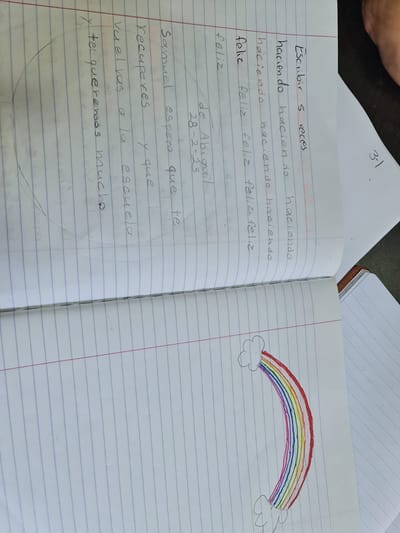 Escribir 5 veces
haciendo haciendo haciendo
haciendo haciendo haciendo
feliz feliz feliz feliz feliz
feliz
de Abigail
28-2-23
Samuel espero que te
recuperes y que
vuelvas a la escuela
y te queremos mucho
31